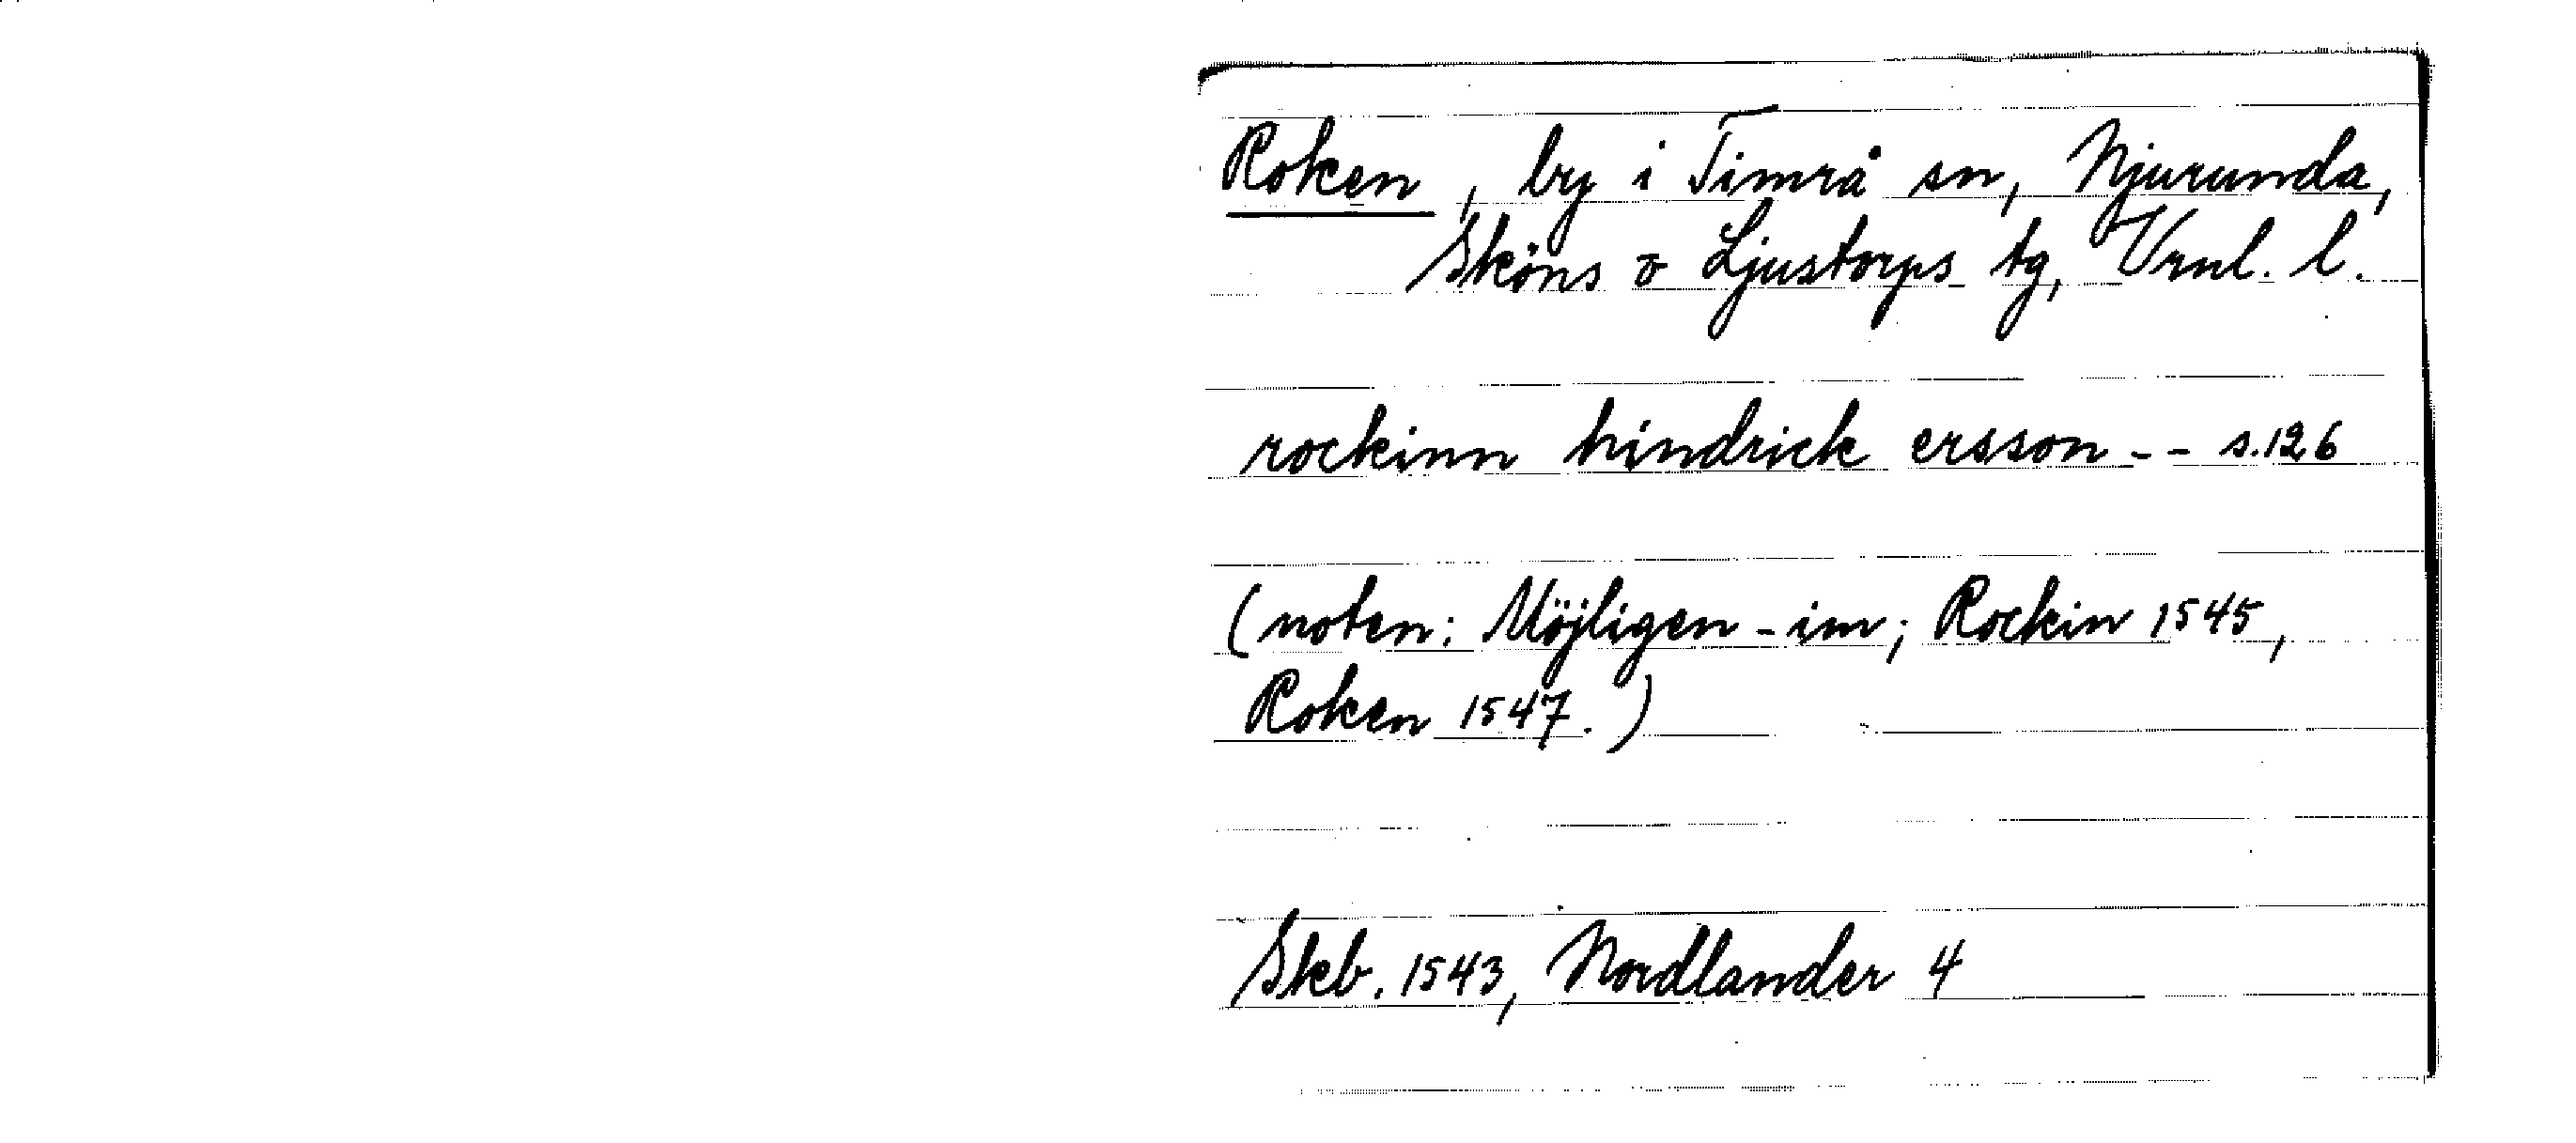 Roken, by i Timrå sn, Njurunda,
Sköns o Ljustorps tg, Vrnl. l.
rockinn hindrick ersson -- s.126
(noten: Möjligen -im; Rockin 1545,
Roken 1547.)
Skb. 1543, Nordlander 4